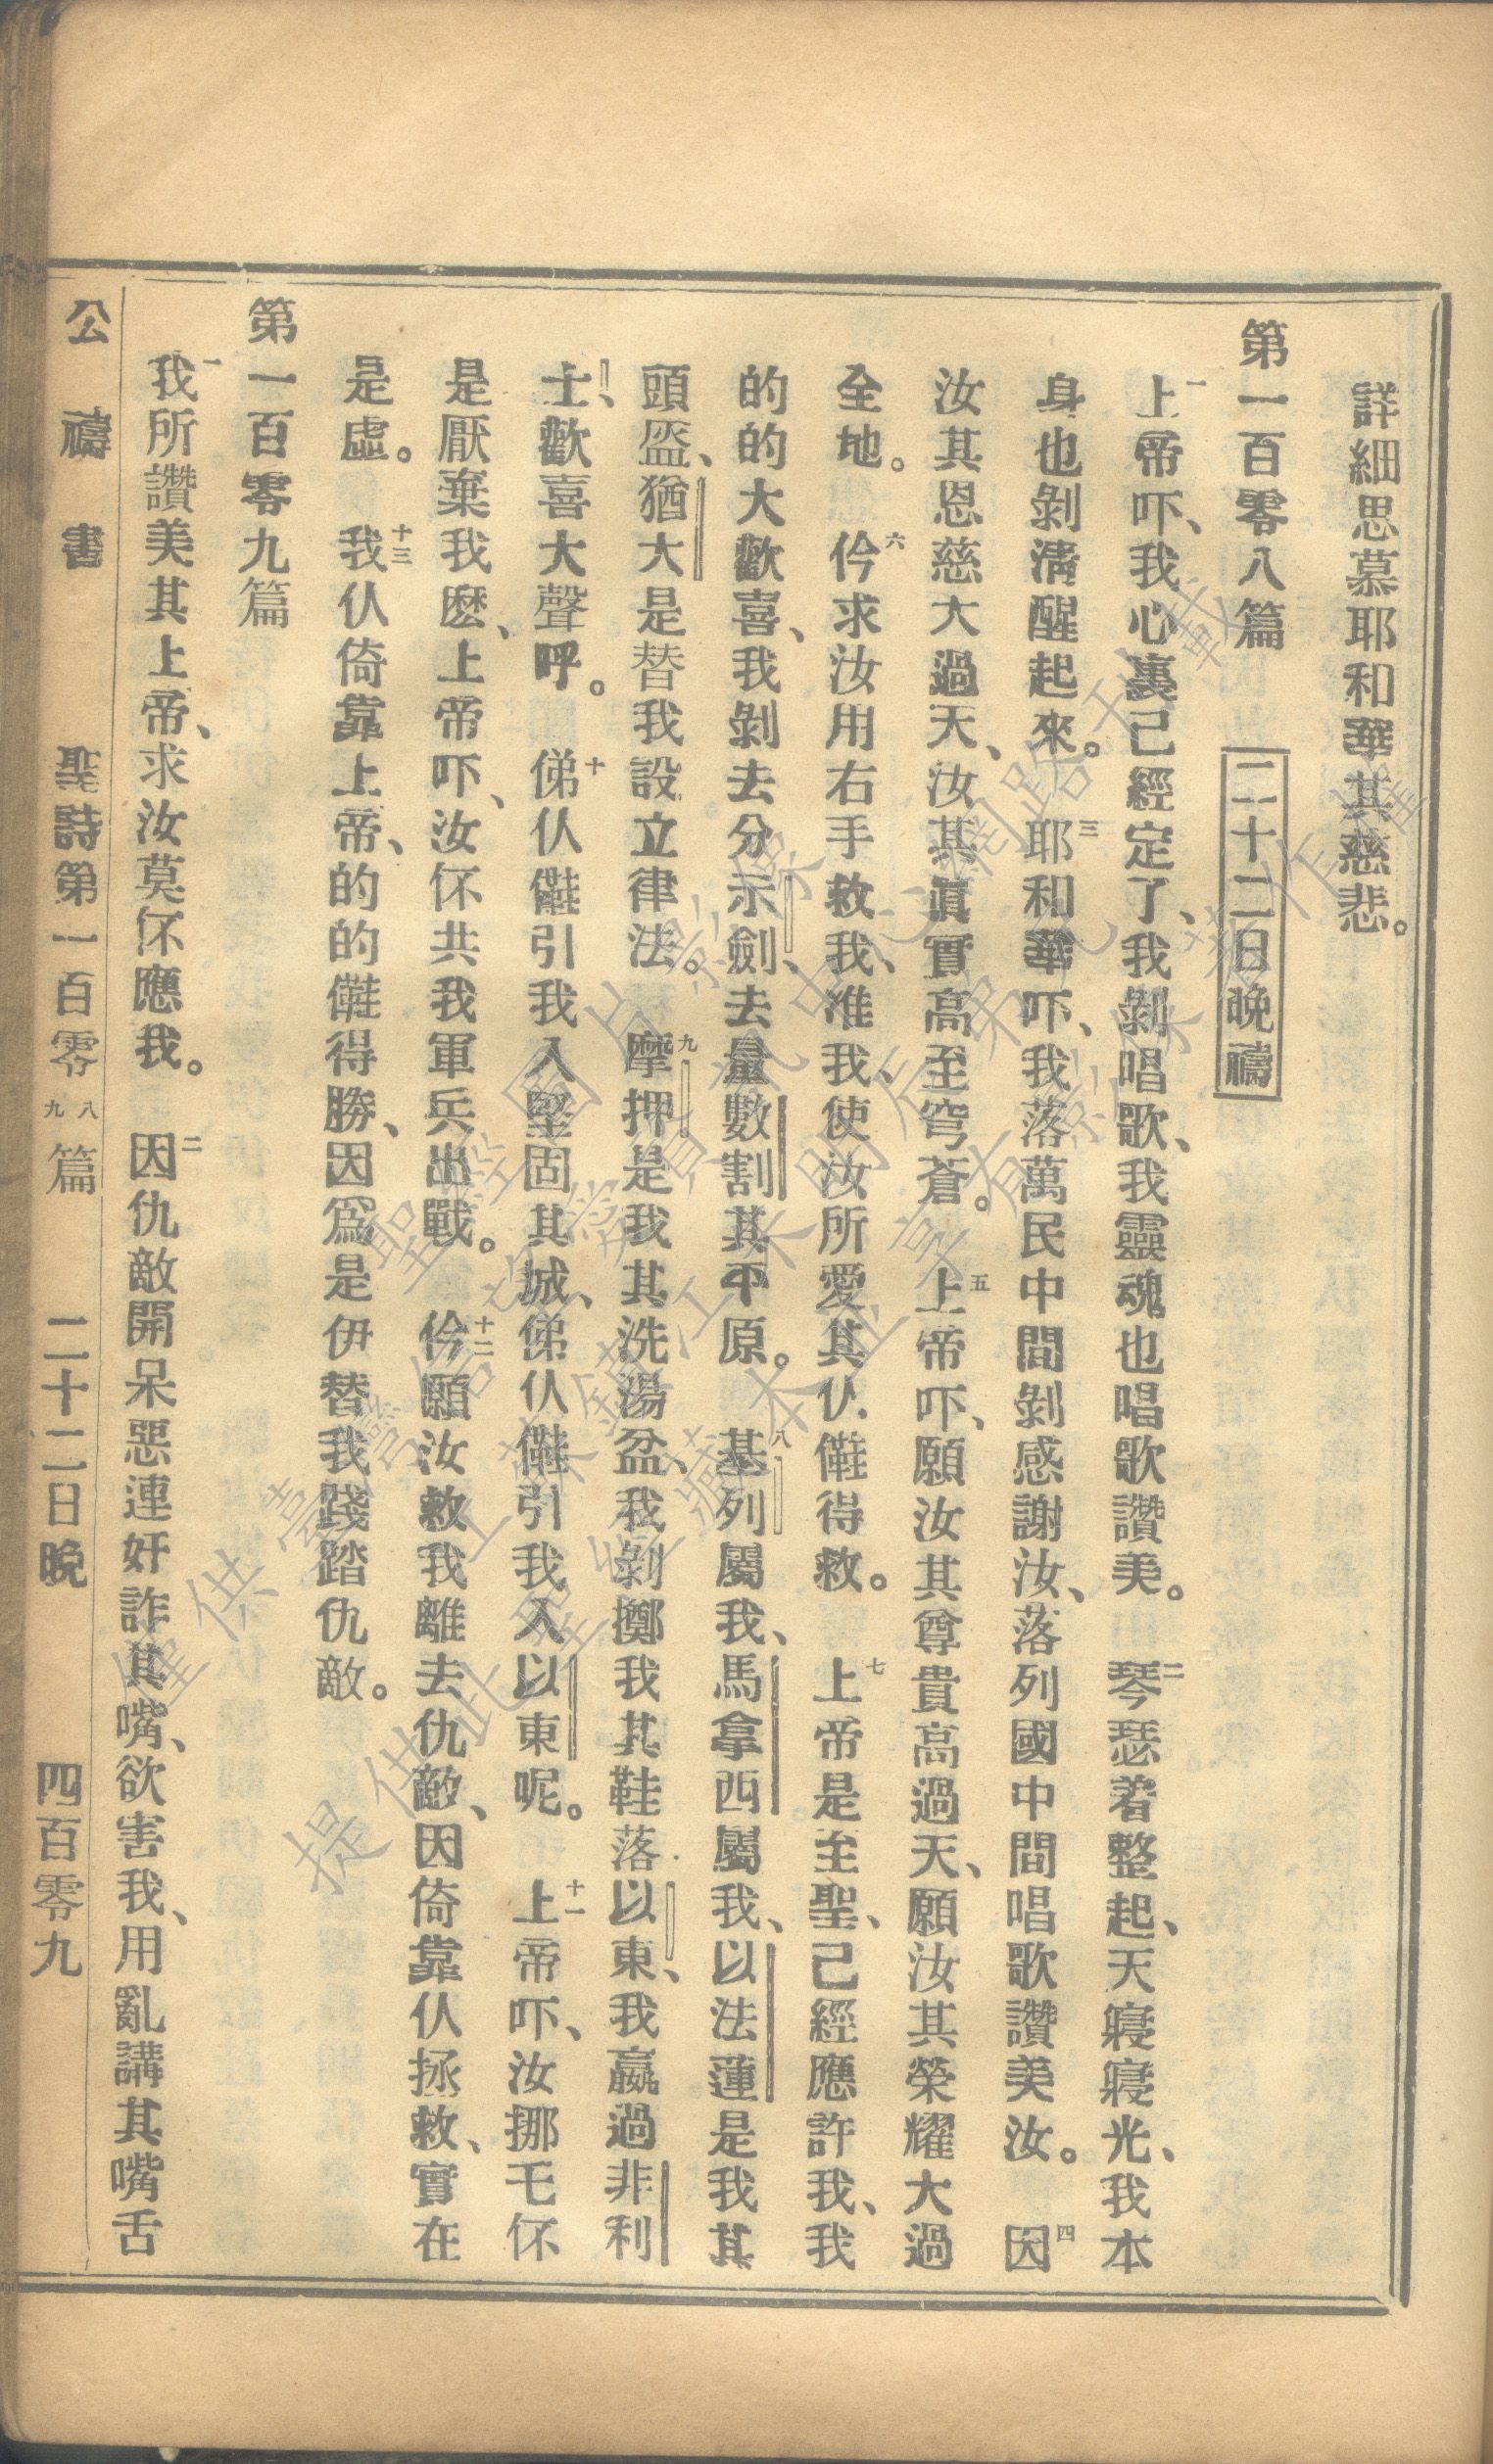 詳細思慕耶和華其慈悲。
第一百零八篇　二十二日晚禱
一上帝吓、我心裏已經定了、我剝唱歌、我靈魂也唱歌讚美。二琴瑟着整起、天寢寢光、我本
身也剝淸醒起來。三耶和華吓、我落萬民中間剝感謝汝、落列國中間唱歌讚美汝。四因
汝其恩慈大過天、汝其眞實高至穹蒼。五上帝吓、願汝其尊貴高過天、願汝其榮耀大過
全地。六仱求汝用右手救我、准我、使汝所愛其仈𠆧得救。七上帝是至聖、已經應許我、我
的的大歡喜、我剝去分示劍、去量數割其平原。八基列屬我、馬拿西屬我、以法蓮是我其
頭盔、猶大是替我設立律法。九摩押是我其洗湯盆、我剝擲我其鞋落以東、我贏過非利
士、歡喜大聲呼。十俤仈𠆧引我入堅固其城、俤仈𠆧引我入以東呢。十一上帝吓、汝挪乇伓
是厭棄我麽、上帝吓、汝伓共我軍兵出戰。十二仱願汝救我離去仇敵、因倚靠仈拯救、實在
是虛。十三我仈倚靠上帝、的的𠆧得勝、因爲是伊替我踐踏仇敵。
第一百零九篇
一我所讚美其上帝、求汝莫伓應我。二因仇敵開呆惡連奸詐其嘴、欲害我、用亂講其嘴舌
公禱書　聖詩第一百零八九篇　二十二日晚　四百零九